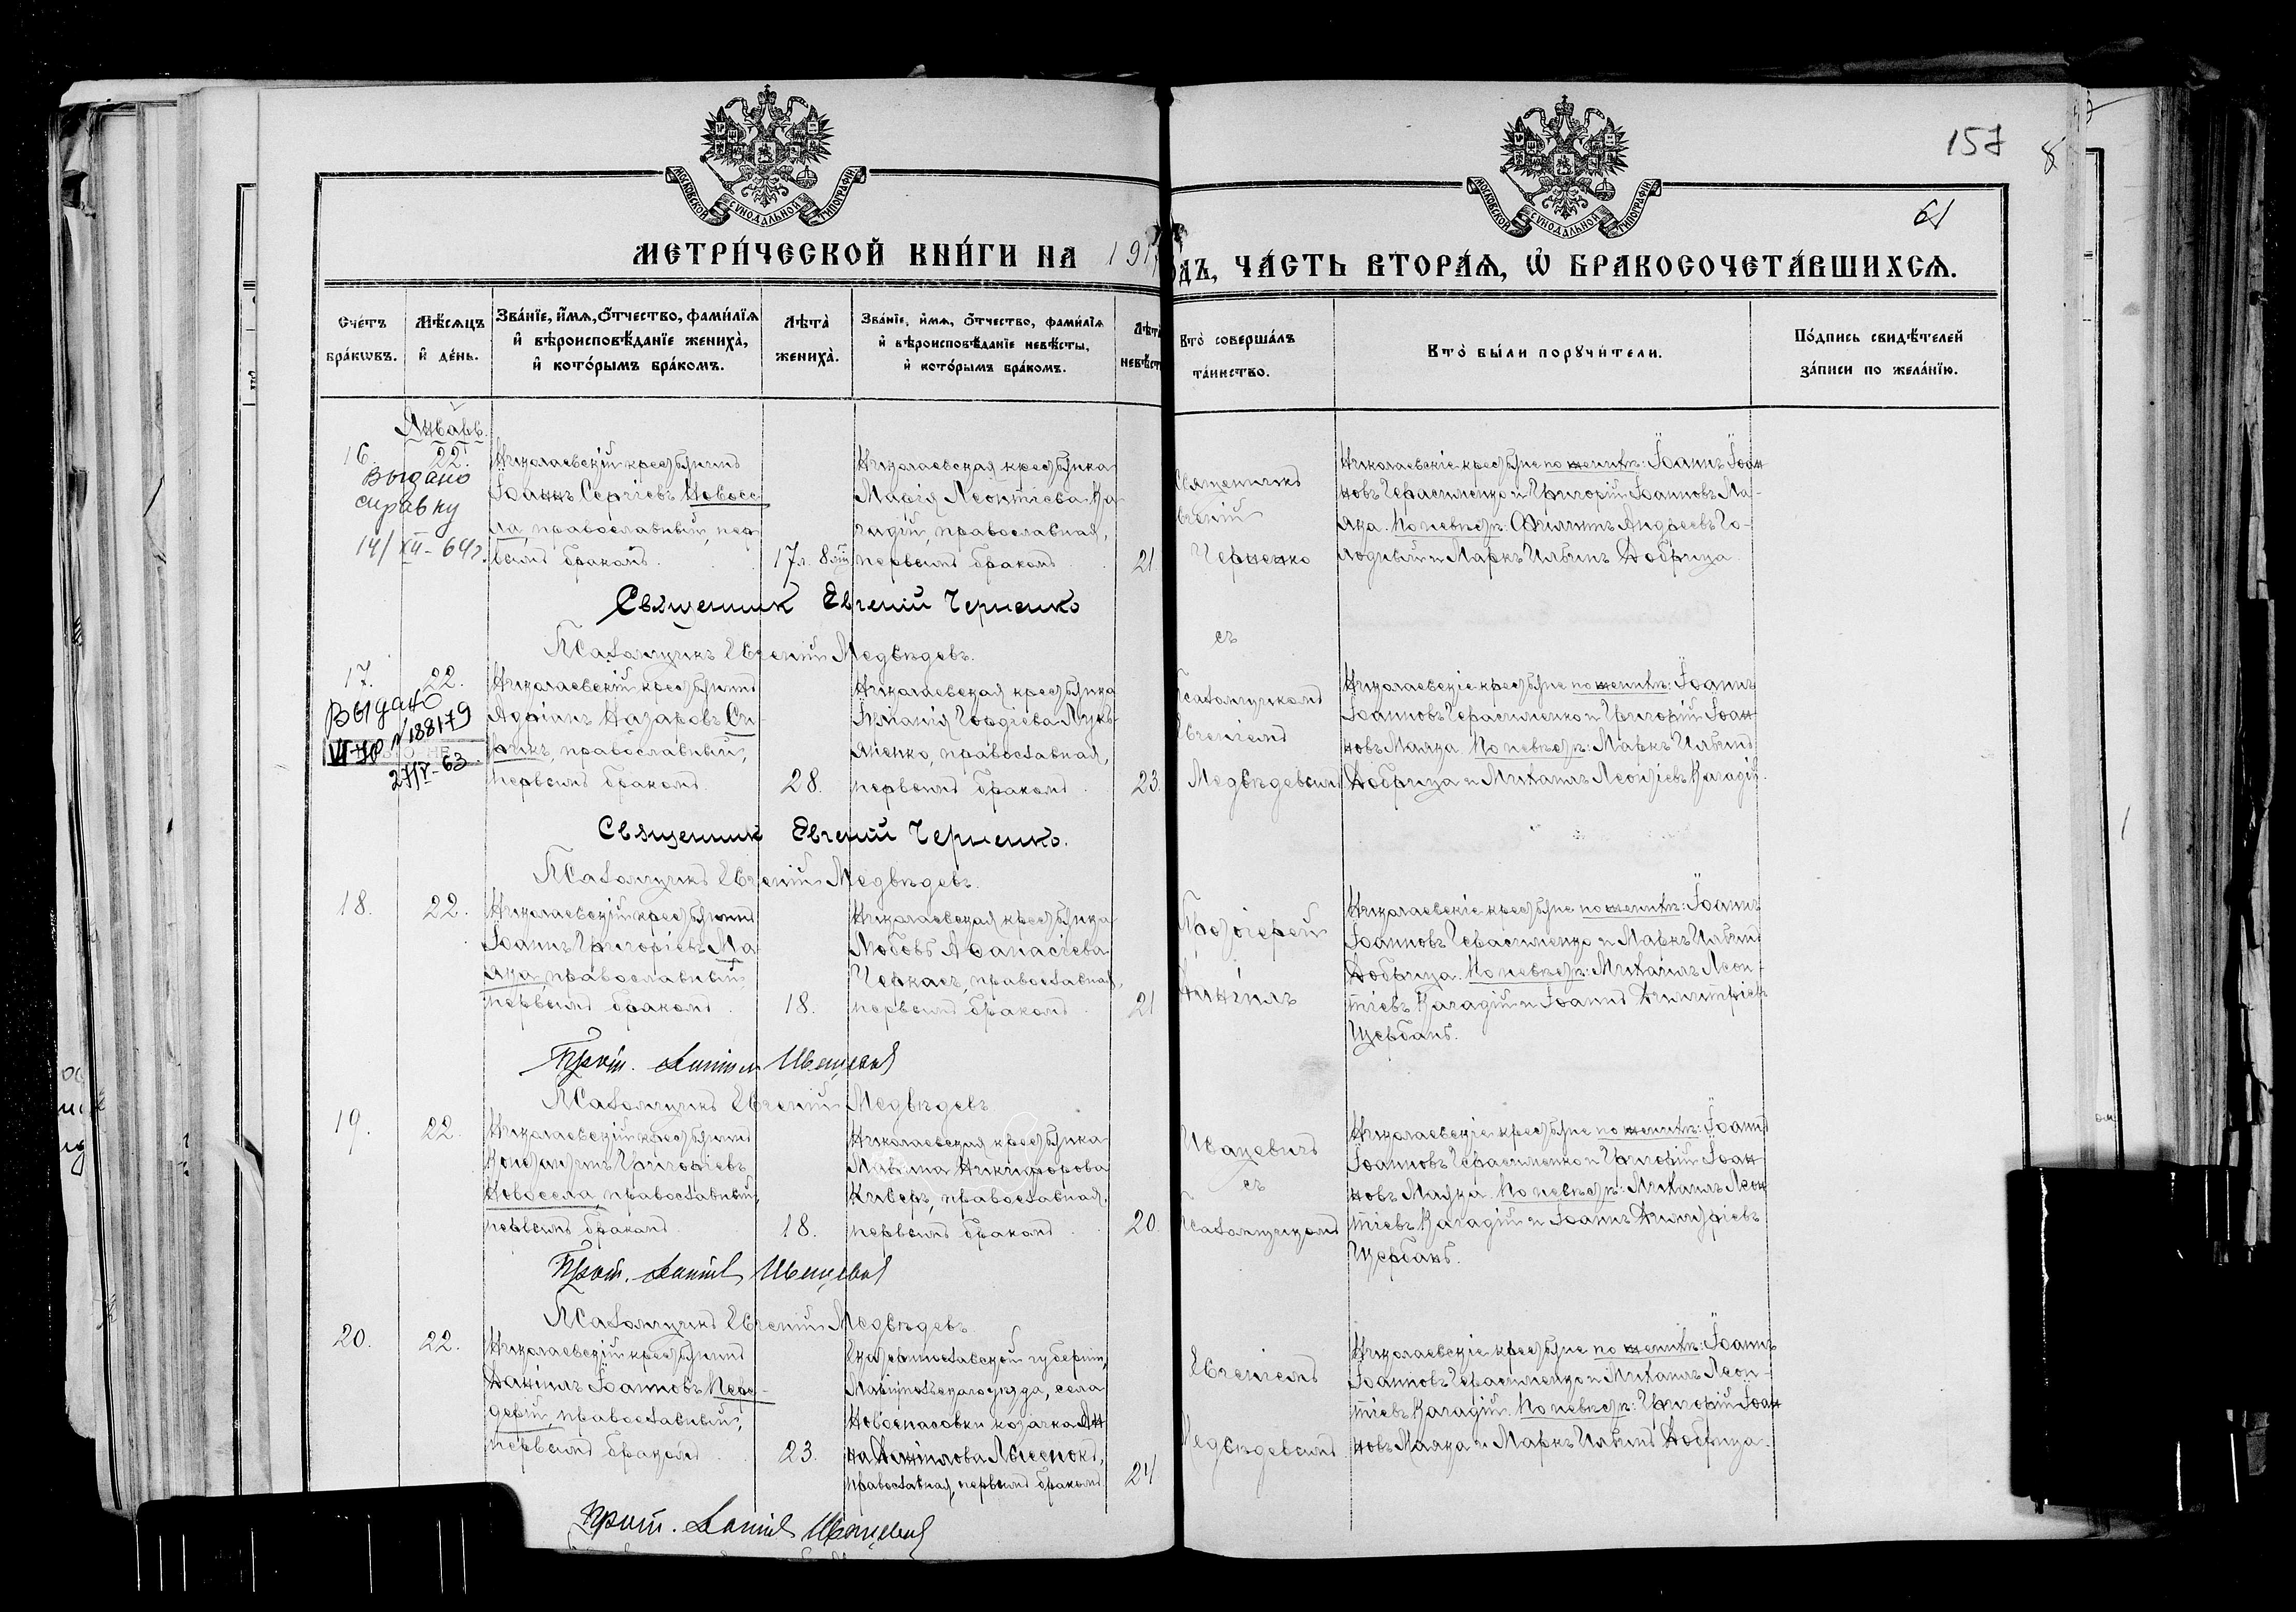 157
8
61
МОСКОВСКОЙ СѴНОДАЛЬНОЙ ТИПОГРАФІИ
МОСКОВСКОЙ СѴНОДАЛЬНОЙ ТИПОГРАФІИ
МЕТРИ́ЧЕСКОЙ КНИ́ГИ НА 191
ДЪ, ЧА́СТЬ ВТОРА́Ѧ, Ѡ БРАКОСОЧЕТА́ВШИХСѦ.
Сче́тъ бра́кѡвъ.
Мѣ́сѧцъ и҆ де́нь.
Зва́нїе, и҆́мѧ, о҆́тчество, фами́лїѧ и҆ вѣроисповѣ́данїе жениха̀, и҆ кото́рымъ бра́комъ.
Лѣта̀ жениха̀.
Зва́нїе, и҆́мѧ, о҆́тчество, фами́лїѧ и҆ вѣроисповѣ́данїе невѣ́сты, и҆ кото́рымъ бра́комъ.
Лѣта̀ невѣ́ст
Кто̀ соверша́лъ та́инство.
Кто̀ бы́ли порꙋчи́тели.
По́дпись свидѣ́телей за́писи по жела́нїю.
Январь.
16. 22.
Выдано
справку
14/XII-64г.
Николаевскій крестьянинъ
Іоаннъ Сергіевъ Новосе-
ла, православный, пер-
вымъ бракомъ.
17л. 8м.
Николаевская крестьянка
Марія Леонтіева Ка-
гадій, православная,
первымъ бракомъ.
21
Священникъ
Евгеній
Черненко
Николаевскіе крестьяне по женихѣ: Іоаннъ Іоан-
новъ Герасименко и Григорій Іоанновъ Ма-
яка. По невѣстѣ: Филиппъ Андреевъ Го-
лодный и Маркъ Ильинъ Добрица.
Священник Евгений Черненко
Псаломщикъ Евгеній Медвѣдевъ.
съ
17. 22.
Выдано
VI-ЮР №188179
27/V-63
Николаевскій крестьянинъ
Адріанъ Назаровъ Си-
православный,
первымъ бракомъ.
28.
Николаевская крестьянка
Гордіева Лукь-
яненко, православная,
первымъ бракомъ.
23.
псаломщикомъ
Евгеніемъ
Медвѣдевымъ
Николаевскіе крестьяне по женихѣ: Іоаннъ
Іоанновъ Герасименко и Григорій Іоан-
новъ Маяка. По невѣстѣ: Маркъ Ильинъ
Добрица и Михаилъ Леонтіевъ Кагадій.
Священник Евгений Черненко.
Псаломщикъ Евгеній Медвѣдевъ.
18. 22.
Николаевскій крестьянинъ
Іоаннъ Григоріевъ Ма-
яка, православный,
первымъ бракомъ.
18.
Николаевская крестьянка
Любовь Аѳанасіева
Черкасъ, православная,
первымъ бракомъ.
21
Протоіерей
Даніилъ
Николаевскіе крестьяне по женихѣ: Іоаннъ
Іоанновъ Герасименко и Маркъ Ильинъ
Добрица. По невѣстѣ: Михаилъ Леон-
тіевъ Кагадій и Іоаннъ Димитріевъ
Щербань.
Прот. Даніилъ Иващевич
Псаломщикъ Евгеній Медвѣдевъ
19. 22.
Николаевскій крестьянинъ
Константинъ Григоріевъ
Новосела, православный,
первымъ бракомъ.
18.
Николаевская крестьянка
Марина Никифорова
Киверъ, православная,
первымъ бракомъ.
20.
Иващевичъ
съ
псаломщикомъ
Николаевскіе крестьяне по женихѣ: Іоаннъ
Іоанновъ Герасименко и Григорій Іоан-
новъ Маяка. По невѣстѣ: Михаилъ Леон-
тіевъ Кагадій и Іоаннъ Димитріевъ
Щербань.
Прот. Даніилъ Иващевич
Псаломщикъ Евгеній Медвѣдевъ.
20. 22.
Николаевскій крестьянинъ
Даніилъ Іоанновъ Пере-
дерій, православный,
первымъ бракомъ.
23.
Екатеринославской губерніи,
Маріупольскаго уѣзда, села
Новоспасовки козачка Ан-
на Даніилова Лысенокъ,
православная, первымъ бракомъ
24
Евгеніемъ
Медвѣдевымъ.
Николаевскіе крестьяне по женихѣ: Іоаннъ
Іоанновъ Герасименко и Михаилъ Леон-
тіевъ Кагадій. По невѣстѣ: Григорій Іоан-
новъ Маяка и Маркъ Ильинъ Добрица.
Прот. Даніилъ Иващевич